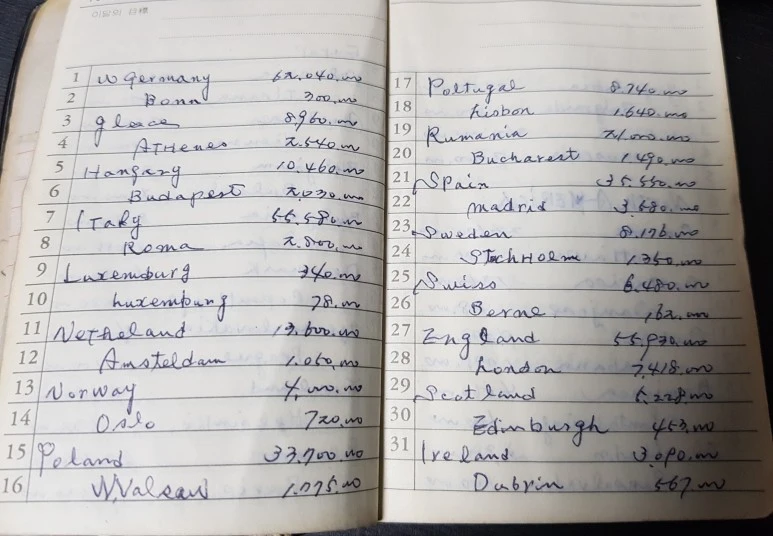 이달의 目標
1 W Germany 62.040.00
2 Bonn 300.00
3 glace 8.960.00
4 ATHenes 2.540.00
5 Hangary 10.460.00
6 Budapest 2.030.00
7 ITaly 55.580.00
8 Roma 2.800.00
9 Luxemburg 340.00
10 Luxempurg 78.00
11 Netheland 13.600.00
12 Amsteldam 1.050.00
13 Norway 4.00.00
14 Oslo 720.00
15 Poland 33.700.00
16 W.Valsau
17 Poltugal 8.740.00
18 Lisbon 1.640.00
19 Rumania
20 Bucharest 1.490.00
21 Spain 35.550.00
22 madrid 3.580.00
23 Sweden 8.176.00
24 STockHolme 1.350.00
25 Swiss 6.480.00
26 Berne 162.00
27 England 55.930.00
28 London 7.418.00
29 Scotland 5.228.00
30 Edinburgh 453.00
31 Ireland 3.090.00
Dubrin 567.00